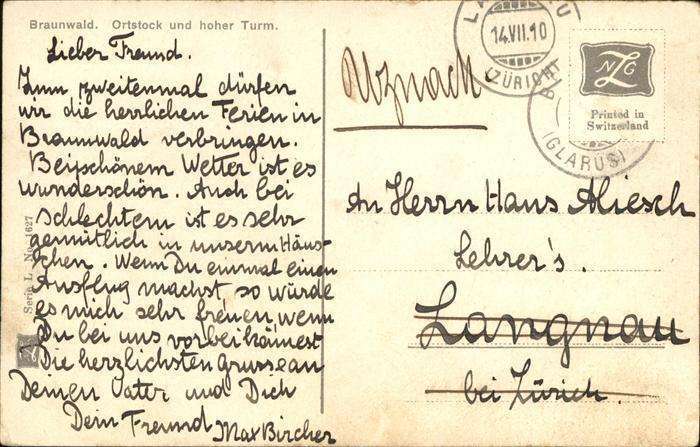 Braunwald. Ortstock und hoher Turm.
Lieber Freund.
Zum zweitenmal dürfen
wir die herrlichen Ferien in
Braunwald verbringen.
Bei schönem Wetter ist es
wunderschön. Auch bei
schlechtem ist es sehr
gemütlich in unserm Häus-
chen. Wenn Du einmal einen
Ausflug machst, so würde
es mich sehr freuen, wenn
Du bei uns vorbei kämest
Die herzlichsten Grusse an
Deinen Vater und Dich
Dein Freund Max Bircher
Serie L. No. 1627
14.VII.10
(ZÜRICH)
(GLARUS)
NZG
Printed in
Switzerland
Uznach.
An Herrn Hans
Lehrer's.
Langnau
bei Zürich.